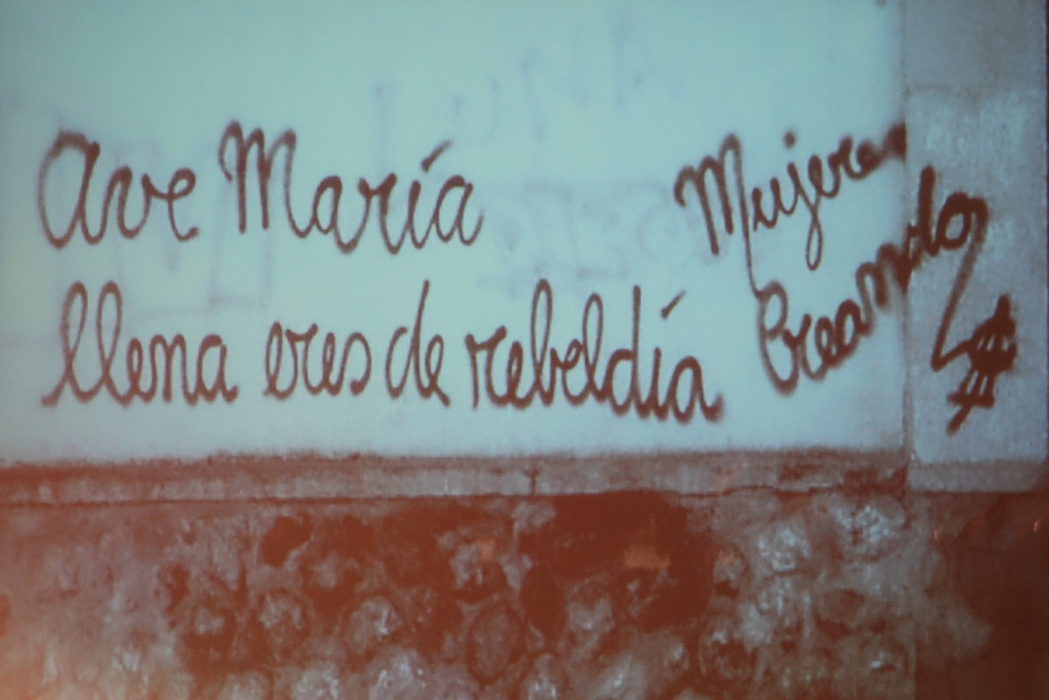 Ave María
llena eres de rebeldía
Mujeres
Creando